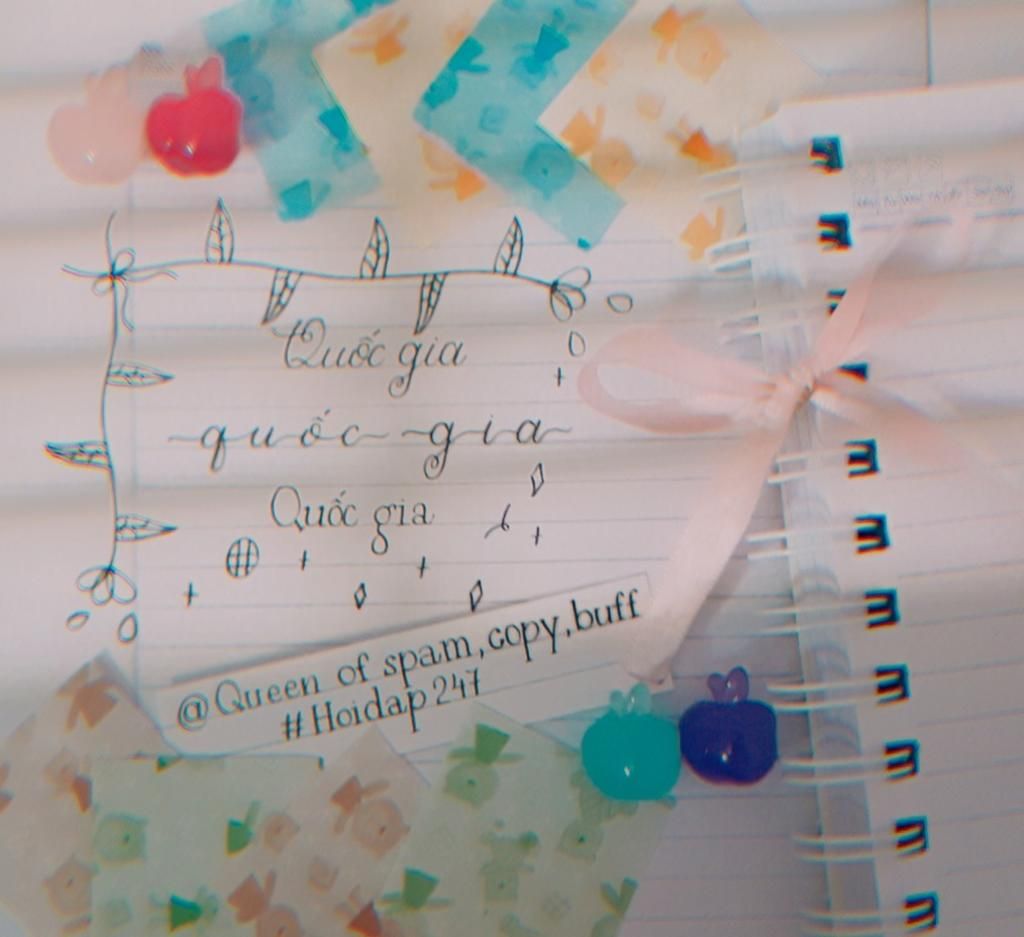 Quốc gia
quốc gia
Quốc gia
@Queen of spam,copy,buff
#Hoidap247